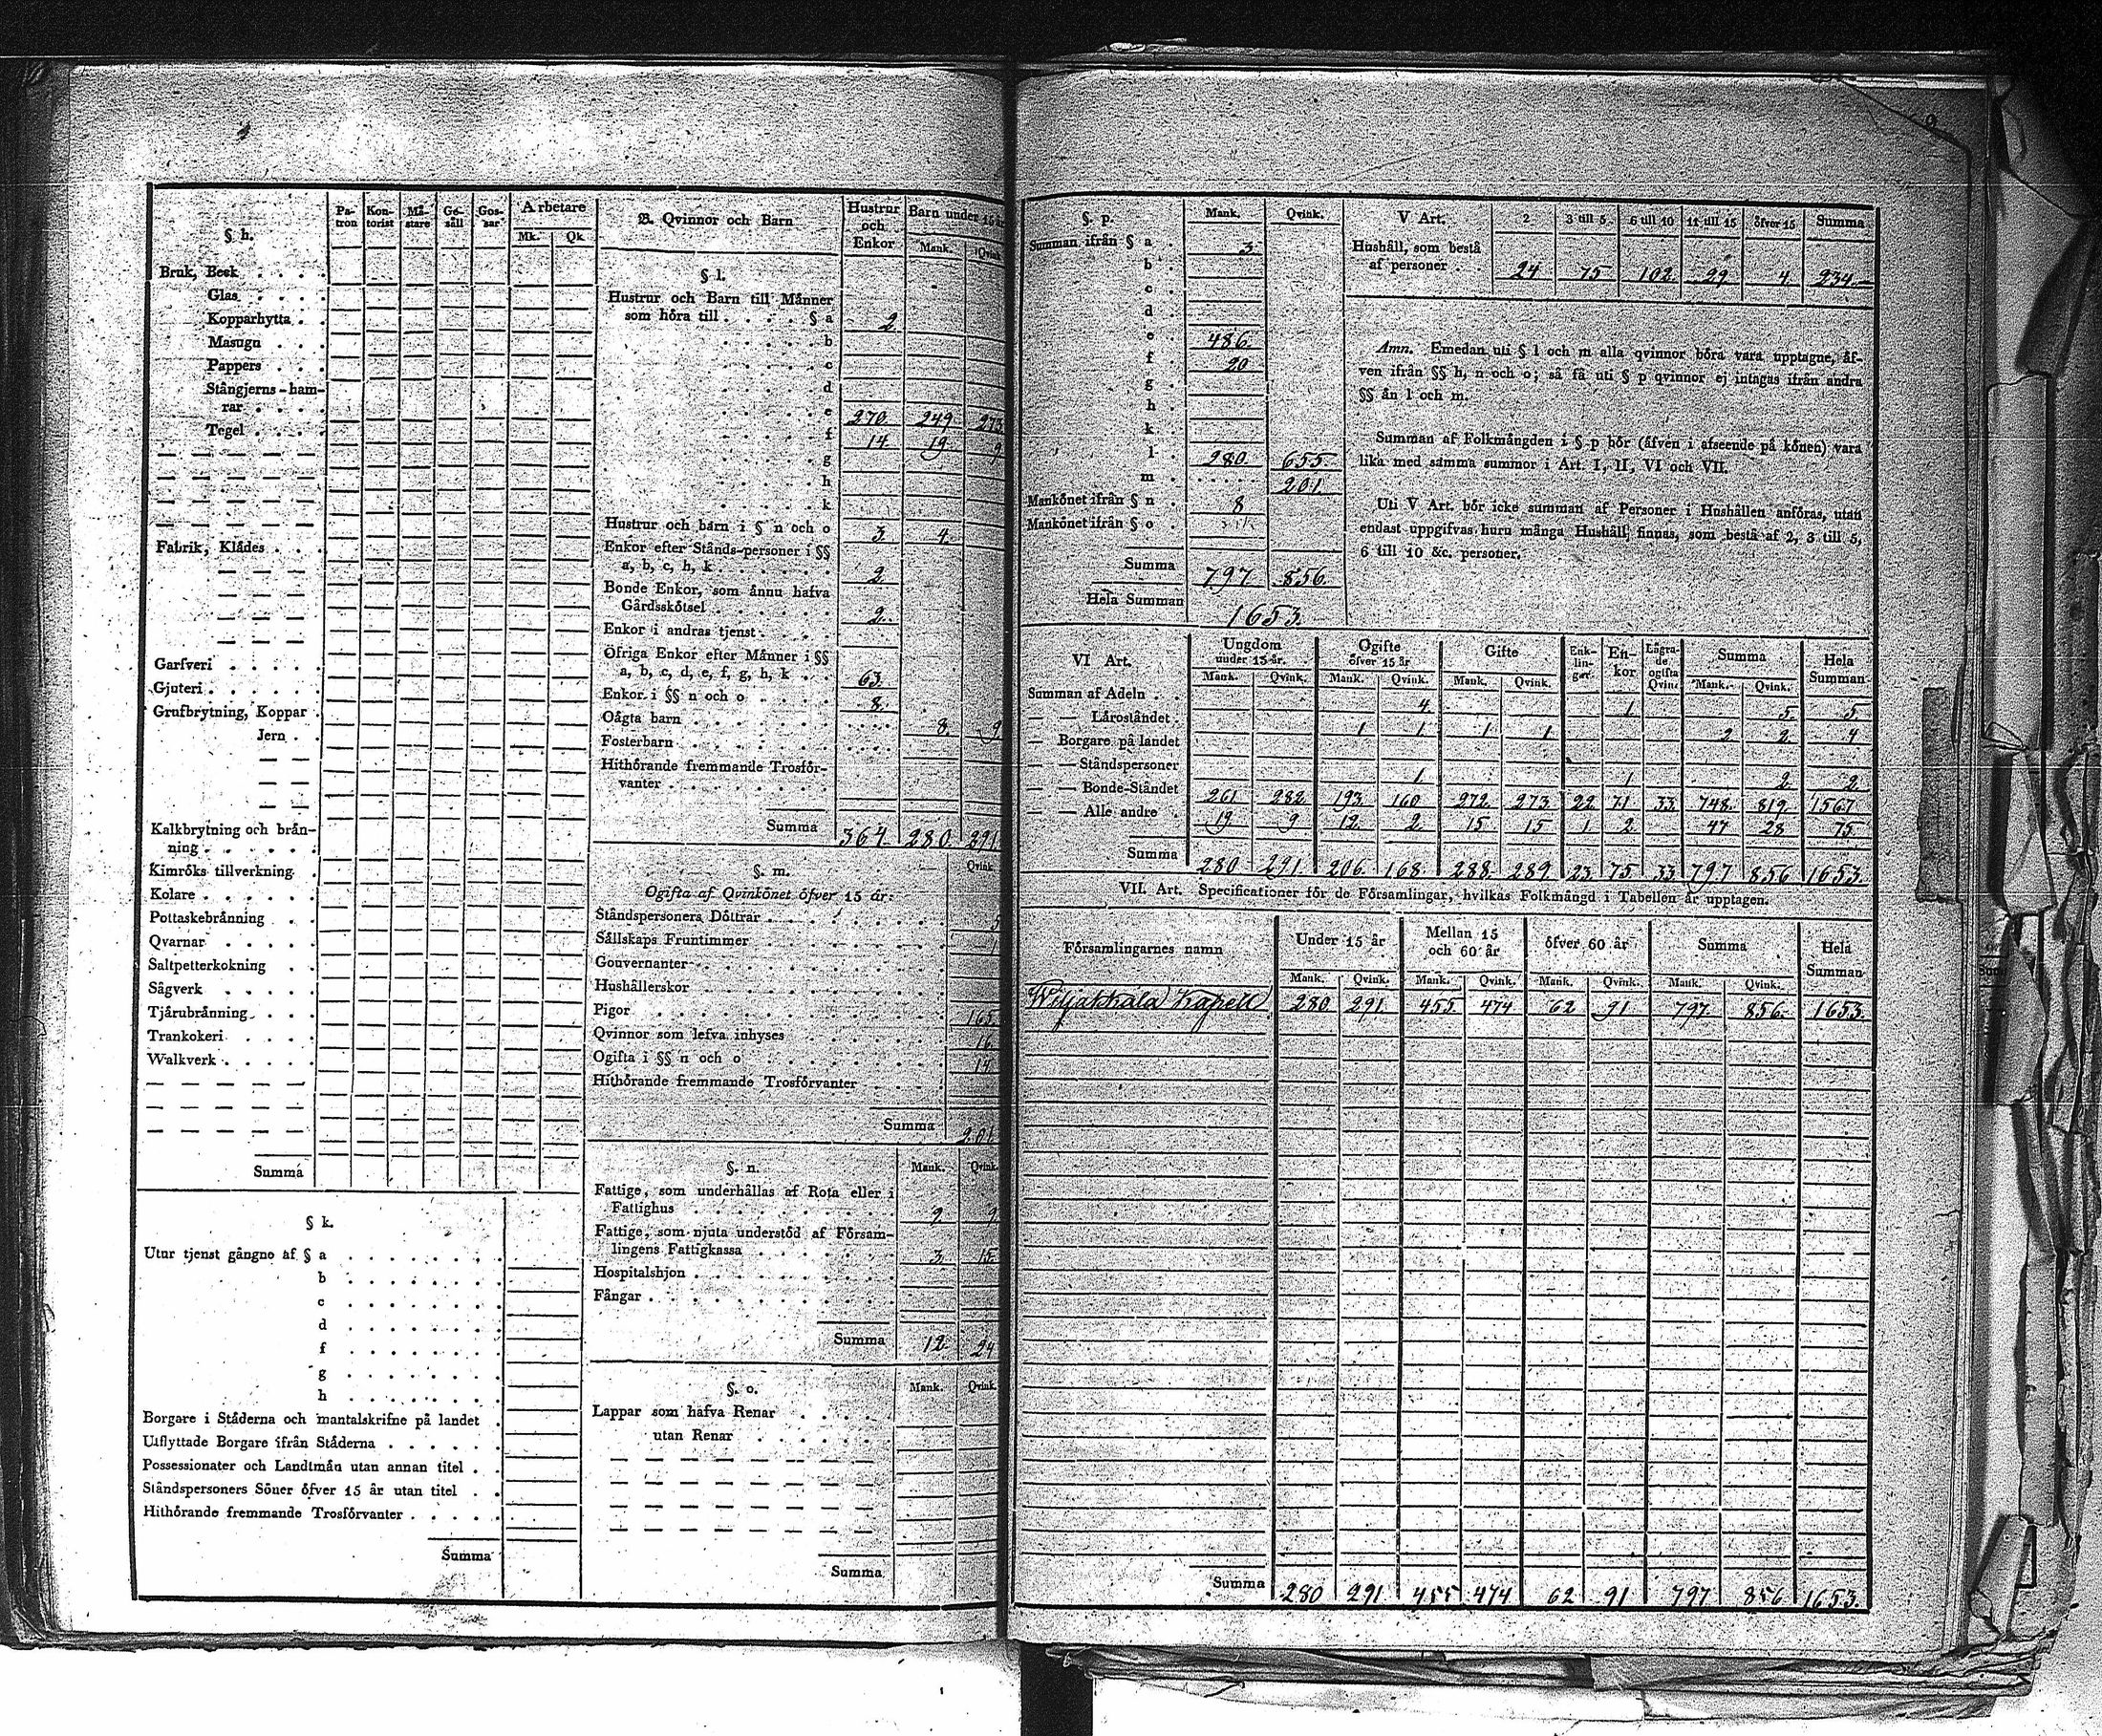 § h.
Pa-tron Kon-torist Mä-stare Ge-säll Gos-sar Arbetare
Mk. Qk
Bruk, Beck . . . .
Glas . . . .
Kopparhytta . .
Masugn . . .
Pappers . . .
Stångjerns-ham-
rar . . . .
Tegel . . . .
Fabrik, Klädes . . .
Garfveri . . . . .
Gjuteri . . . . . .
Grufbrytning, Koppar .
Jern . .
Kalkbrytning och brän-
ning . . . . . .
Kimröks tillverkning .
Kolare . . . . . .
Pottaskebränning . .
Qvarnar . . . . .
Saltpetterkokning . .
Sågverk . . . . .
Tjärubränning . . .
Trankokeri . . . .
Walkverk . . . . .
Summa
§ k.
Utur tjenst gångne af § a . . . . . . .
b . . . . . . .
c . . . . . . .
d . . . . . . .
f . . . . . . .
g . . . . . . .
h . . . . . . .
Borgare i Städerna och mantalskrifne på landet .
Utflyttade Borgare ifrån Städerna . . . . . .
Possessionater och Landtmän utan annan titel . .
Ståndspersoners Söner öfver 15 år utan titel . .
Hithörande fremmande Trosförvanter . . . . .
Summa
B. Qvinnor och Barn Hustrur och Enkor Barn under 15 år
Mank. Qvink.
§ l.
Hustrur och Barn till Männer
som höra till . . . . § a 2
b
c
d
e 270 249 273
f 14 19 9
g
h
k
Hustrur och barn i § n och o 3 4
Enkor efter Stånds-personer i §§
a, b, c, h, k . . . . . . 2
Bonde Enkor, som ännu hafva
Gårdsskötsel . . . . . . 2
Enkor i andras tjenst . . . .
Öfriga Enkor efter Männer i §§
a, b, c, d, e, f, g, h, k . . 63
Enkor i §§ n och o . . . . 8
Oägta barn . . . . . . . 8 9
Fosterbarn . . . . . . .
Hithörande fremmande Trosför-
vanter . . . . . . . .
Summa 364 280 291
§. m. Qvink.
Ogifta af Qvinkönet öfver 15 år:
Ståndspersoners Döttrar . . . . . . . 5
Sällskaps Fruntimmer . . . . . . . 1
Gouvernanter . . . . . . . . .
Hushållerskor . . . . . . . . .
Pigor . . . . . . . . . . . 165
Qvinnor som lefva inhyses . . . . . . 16
Ogifta i §§ n och o . . . . . . . 14
Hithörande fremmande Trosförvanter . . . .
Summa 201
§. n. Mank. Qvink.
Fattige, som underhållas af Rota eller i
Fattighus . . . . . . . . . 9 9
Fattige, som njuta understöd af Försam-
lingens Fattigkassa . . . . . . 3 15
Hospitalshjon . . . . . . . . .
Fångar . . . . . . . . . . .
Summa 12 24
§. o. Mank. Qvink.
Lappar som hafva Renar . . . .
utan Renar . . . . .
Summa
§. p. Mank. Qvink.
Summan ifrån § a 3
b .
c .
d .
e . 486
f . 20
g .
h .
k .
l . 280 655
m . . . . . . 201
Mankönet ifrån § n . 8
Mankönet ifrån § o .
Summa 797 856
Hela Summan 1653
V Art. 2 3 till 5 6 till 10 11 till 15 öfver 15 Summa
Hushåll, som bestå
af personer . . 24 75 102 29 4 234
Anm. Emedan uti § l och m alla qvinnor böra vara upptagne, äf-
ven ifrån §§ h, n och o; så få uti § p qvinnor ej intagas ifrån andra
§§ än l och m.
Summan af Folkmängden i § p bör (äfven i afseende på könen) vara
lika med samma summor i Art. I, II, VI och VII.
Uti V Art. bör icke summan af Personer i Hushållen anföras, utan
endast uppgifvas huru många Hushåll finnas, som bestå af 2, 3 till 5,
6 till 10 &c. personer.
VI Art. Ungdom under 15 år. Ogifte öfver 15 år Gifte Enk-lin-gar. En-kor Lägra-de ogifta Qvin. Summa Hela Summan
Mank. Qvink. Mank. Qvink. Mank. Qvink. Mank. Qvink.
Summan af Adeln . . 4 1 5 5
— — Läroståndet . 1 1 1 1 2 2 4
— — Borgare på landet
— — Ståndspersoner 1 1 2 2
— — Bonde-Ståndet 261 282 193 160 272 273 22 71 33 748 819 1567
— — Alle andre . 19 9 12 2 15 15 1 2 47 28 75
Summa 280 291 206 168 288 289 23 75 33 797 856 1653
VII. Art. Specificationer för de Församlingar, hvilkas Folkmängd i Tabellen är upptagen.
Församlingarnes namn Under 15 år Mellan 15 och 60 år öfver 60 år Summa Hela Summan
Mank. Qvink. Mank. Qvink. Mank. Qvink. Mank. Qvink.
Wiljakkala Kapell 280 291 455 474 62 91 797 856 1653
Summa 280 291 455 474 62 91 797 856 1653